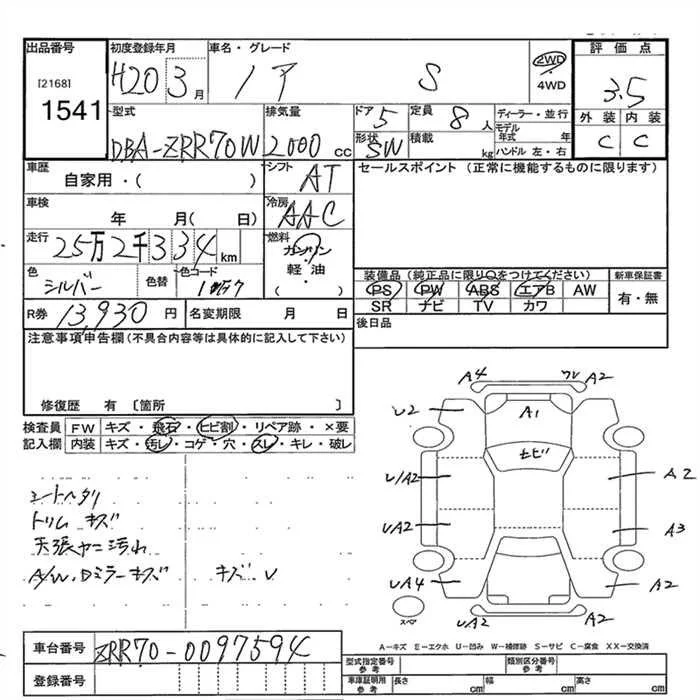 出品番号 初度登録年月 車名・グレード 評価点
[2168] H20 3月 ノア S 2WD 3.5
1541 4WD
外装 内装
型式 排気量 ドア 5 定員 8人 ディーラー・並行
C C
DBA-ZRR70W 2000cc 形状 SW 積載 kg モデル年式 年
ハンドル 左・右
車歴 シフト AT セールスポイント (正常に機能するものに限ります)
自家用・( )
車検 冷房 AAC
年 月( 日)
走行 25万2千334km 燃料 ガソリン
軽・油
( )
色 シルバー 色替 色コード
装備品(純正品に限り○をつけてください) 新車保証書
PS PW ABS エアB AW 有・無
SR ナビ TV カワ
R券 13,930円 名変期限 月 日
後日品
注意事項申告欄(不具合内容等は具体的に記入して下さい)
修復歴 有〔箇所 〕
検査員 FW キズ・飛石・ヒビ割・リペア跡・×要
記入欄 内装 キズ・汚レ・コゲ・穴・スレ・キレ・破レ
シートヘタリ
トリム キズ
天張ヤニ汚れ
A/W.Dミラーキズ キズ.U
A4 A2
U2 A1
ヒビ
U/A2 A2
UA2 A3
UA4 A2
スペア UA2 A2
A-キズ E-エクボ U-凹み W-補修跡 S-サビ C-腐食 XX-交換済
車台番号 ZRR70-0097594
登録番号
型式指定番号 参考 類別区分番号 参考
車庫証明用 参考 長さ cm 幅 cm 高さ cm